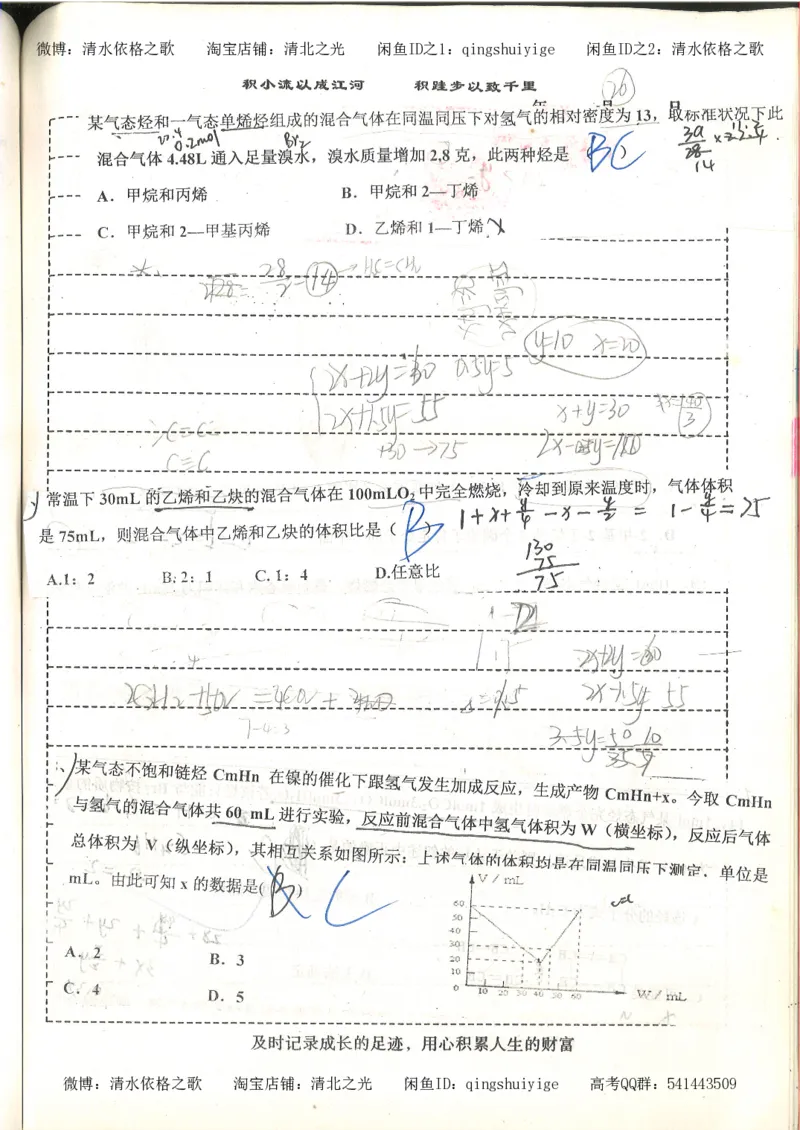 微博：清水依格之歌 淘宝店铺：清北之光 闲鱼ID之1：qingshuiyige 闲鱼ID之2：清水依格之歌
积小流以成江河 积跬步以致千里
26
某气态烃和一气态单烯烃组成的混合气体在同温同压下对氢气的相对密度为 13，取标准状况下此
0.2mol Br₂
混合气体 4.48L 通入足量溴水，溴水质量增加 2.8 克，此两种烃是（ ）
BC
A．甲烷和丙烯 B．甲烷和 2—丁烯
C．甲烷和 2—甲基丙烯 D．乙烯和 1—丁烯
28/2=14 HC≡CH
y=10 x=20
2x+2y=60 0.5y=5
2x+1.5y=55
x+y=30
+30→75
C=C
C≡C
常温下 30mL 的乙烯和乙炔的混合气体在 100mLO₂ 中完全燃烧，冷却到原来温度时，气体体积
是 75mL，则混合气体中乙烯和乙炔的体积比是（ ）
B
1+x+y/4-x-y/2= 1-y/4=25
130
75
75
A.1：2 B. 2：1 C. 1：4 D.任意比
2x+2y=60
2x+1.5y 55
7-4:3
某气态不饱和链烃 CmHn 在镍的催化下跟氢气发生加成反应，生成产物 CmHn+x。今取 CmHn
与氢气的混合气体共 60 mL 进行实验，反应前混合气体中氢气体积为 W（横坐标），反应后气体
总体积为 V（纵坐标），其相互关系如图所示：上述气体的体积均是在同温同压下测定，单位是
mL。由此可知 x 的数据是( )
B C
A．2
B．3
C．4
D．5
V / mL
60
50
40
30
20
10
0
10 20 30 40 50 60
W / mL
及时记录成长的足迹，用心积累人生的财富
微博：清水依格之歌 淘宝店铺：清北之光 闲鱼ID：qingshuiyige 高考QQ群：541443509